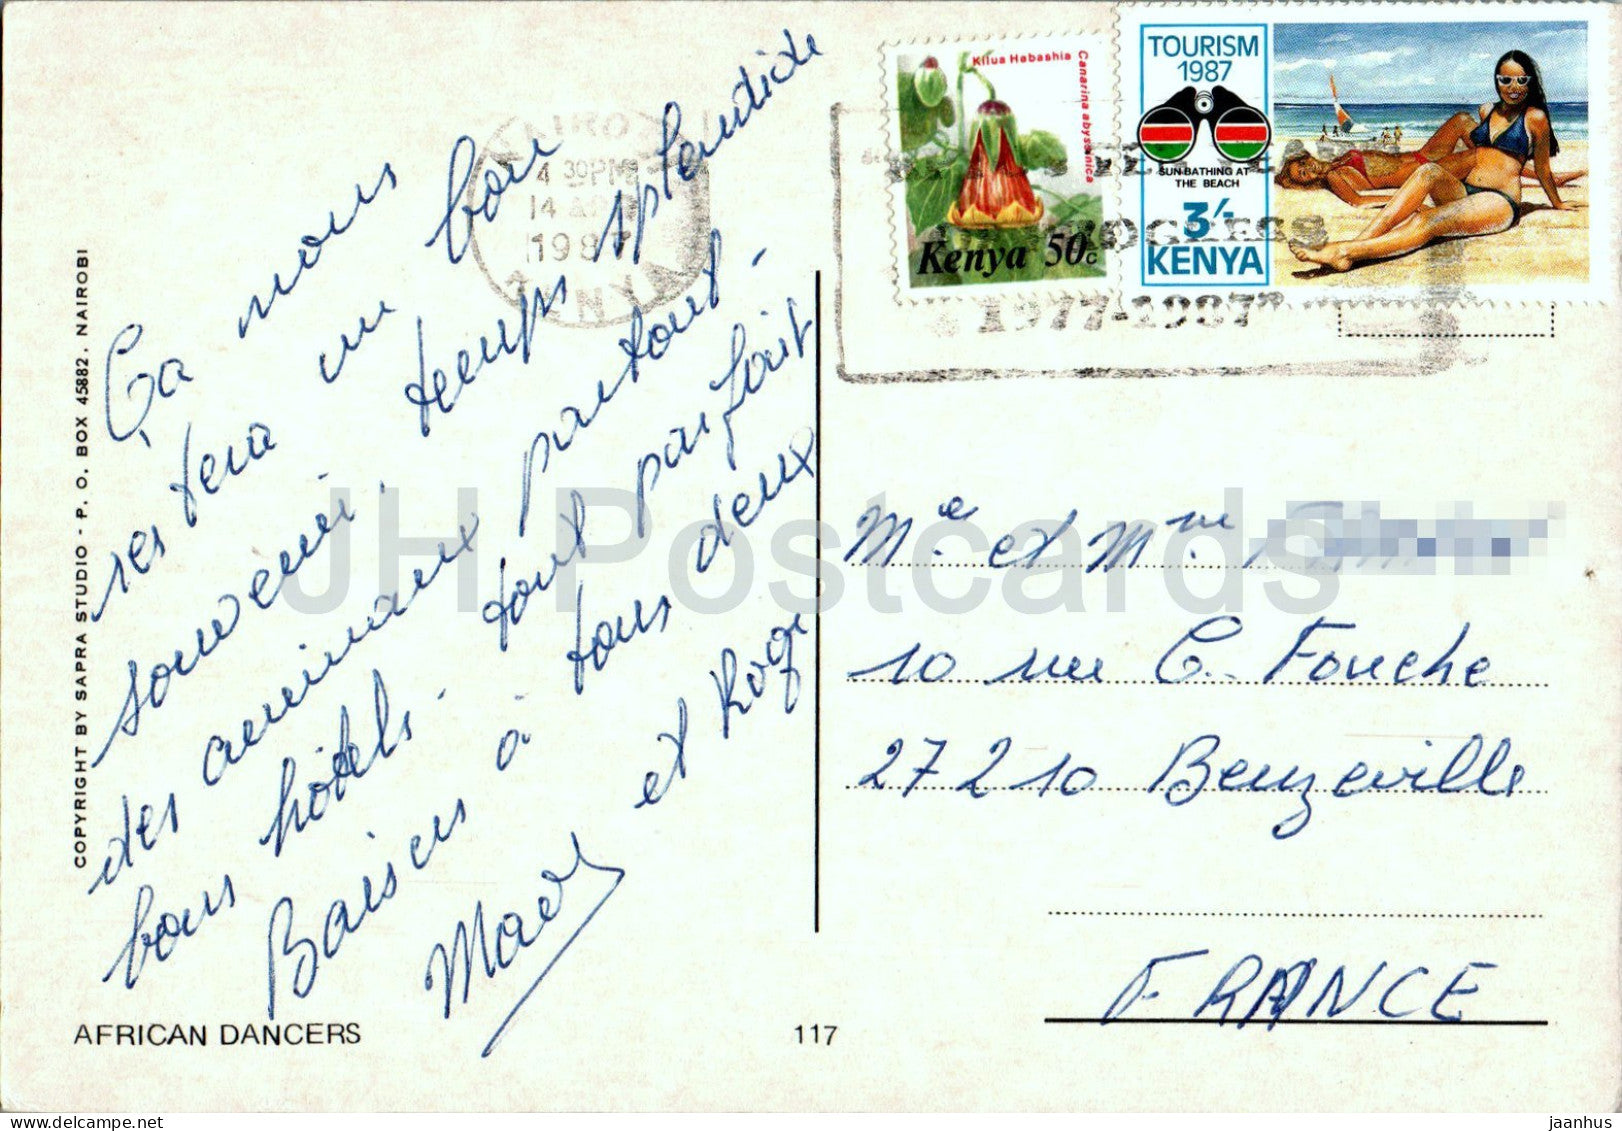 Ça nous
restera un bon
souvenir, temps splendide
des animaux partout -
bons hôtels - tout parfait
Baisers à tous deux
Mado et Roger
COPYRIGHT BY SAPRA STUDIO - P. O. BOX 45882, NAIROBI
AFRICAN DANCERS
117
4 30PM
14 APR
1987
KENYA
Kilua Habashia
Canarina abyssinica
Kenya 50c
TOURISM
1987
SUN-BATHING AT
THE BEACH
3/-
KENYA
1977-1987
Me et Mme
10 rue C. Fouche
27210 Beuzeville
FRANCE
JH Postcards
delcampe.net
jaanhus